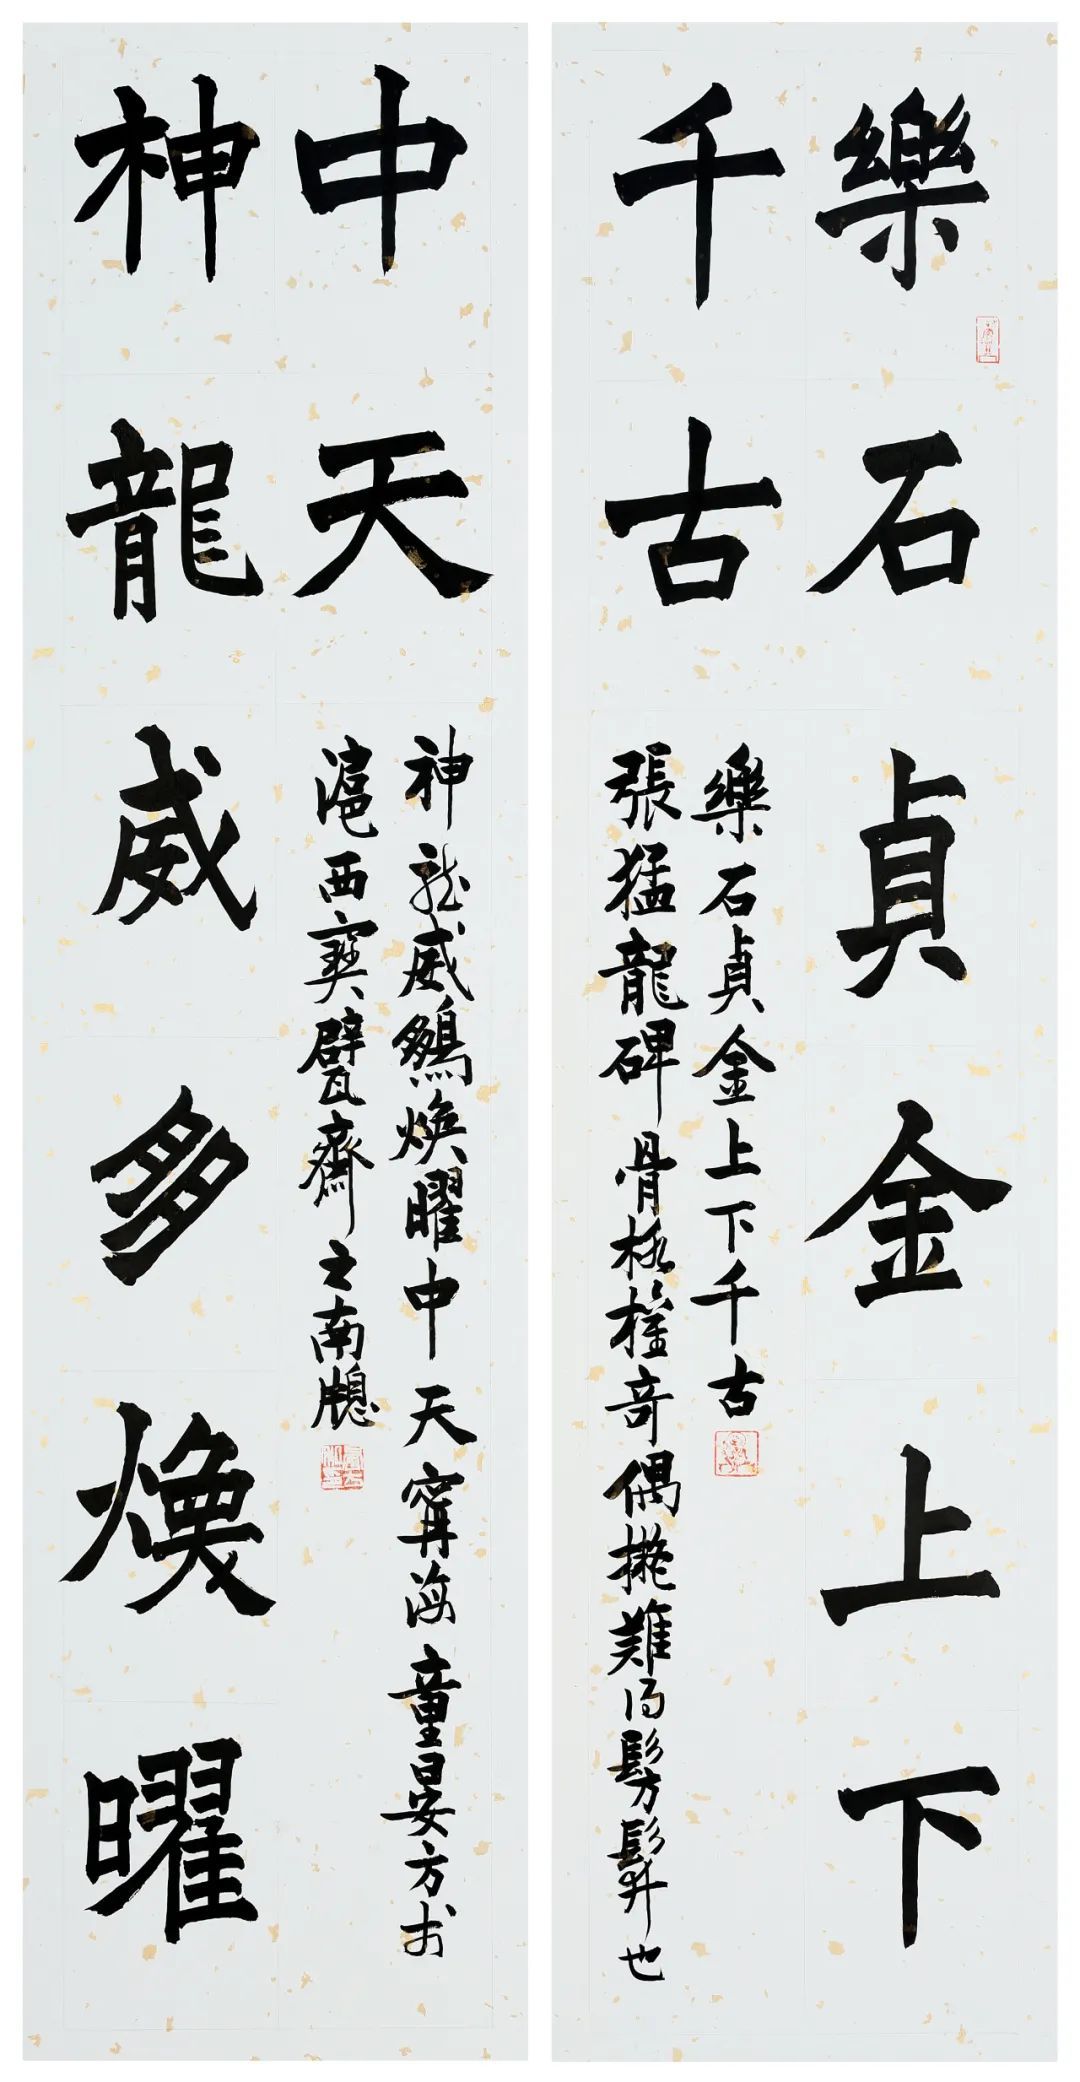 樂石貞金上下
千古
樂石貞金上下千古
張猛龍碑骨格權奇偶擬難得髣髴也
神龍威多煥曜
中天
神龍威煥曜中天寧海童晏方於
滬西寶甓齋之南牕